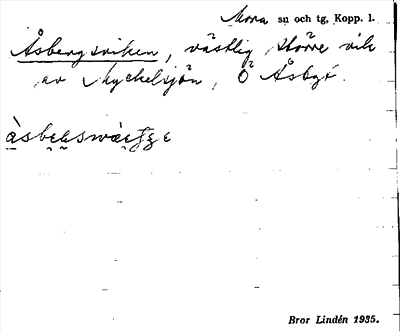 Mora sn och tg, Kopp. l.
Åsbergsviken, västlig större vik
av Myckelsjön, Ö Åsbyt.
Bror Lindén 1935.